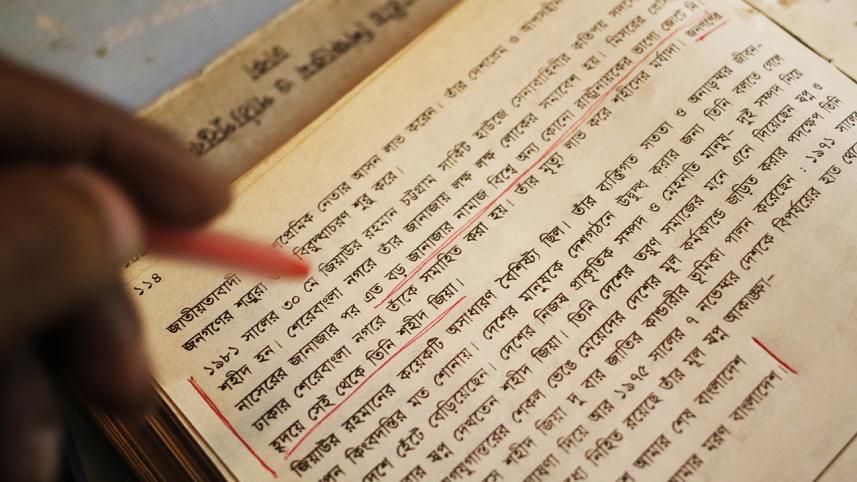 ১১৪
জাতীয়তাবাদী দেশপ্রেমিক নেতার আসন লাভ করেন। তাঁর দেশপ্রেম ও
জনগণের শত্রুরা বিরুদ্ধাচরণ শুরু করে।
১৯৮১ সালের ৩০ মে জিয়াউর রহমান চট্টগ্রাম সার্কিট হাউজে সেনাবাহিনীর কতিপয়
শহীদ হন। শেরেবাংলা নগরে তাঁর জানাজায় লক্ষ লক্ষ লোকের সমাবেশ হয়। মিসরের
নাসেরের জানাজার পর এত বড় জানাজার নামাজ বিশ্বে অন্য কোনো রাষ্ট্রনায়কের ভাগ্যে জোটে নি। জনগণের
ঢাকার শেরেবাংলা নগরে তাঁকে সমাহিত করা হয়। তাঁর মৃত্যু লাভ করে শহীদের মর্যাদা।
হৃদয়ে সেই থেকে তিনি শহীদ জিয়া।
জিয়াউর রহমানের কয়েকটি অসাধারণ বৈশিষ্ট্য ছিল। তাঁর ব্যক্তিগত সততা ও অনাড়ম্বর জীবন-
যাপন কিংবদন্তির মত শোনায়। দেশের মানুষকে দেশগঠনে উদ্বুদ্ধ করার জন্য তিনি বলতে গেলে
দেশে হেঁটে বেড়িয়েছেন। দেশের নিজস্ব প্রাকৃতিক সম্পদ ও মেহনতি মানুষ- দুই সম্পদ নিয়ে
স্বপ্ন দেখতেন শহীদ জিয়া। তিনি দেশের তরুণ সমাজের মনে এনে দিয়েছেন স্বপ্ন ও
যুগযুগান্তরের শেকল ভেঙে মেয়েদের দেশের মূল কর্মকাণ্ডে জড়িত করার পদক্ষেপ তিনি
শহীদ জিয়া দু বার জাতির কাণ্ডারীর ভূমিকা পালন করেছেন : ১৯৭১ সালে
ঘোষণা দিয়ে আর ১৯৭৫ সালের ৭ নভেম্বর দেশকে বিপর্যয়ের হাত থেকে
মধ্যে নিহিত রয়েছে তাঁর মূল স্বপ্ন আকাঙ্ক্ষা-
আমার শেষ বাংলাদেশ
আমার মরণ বাংলাদেশ।